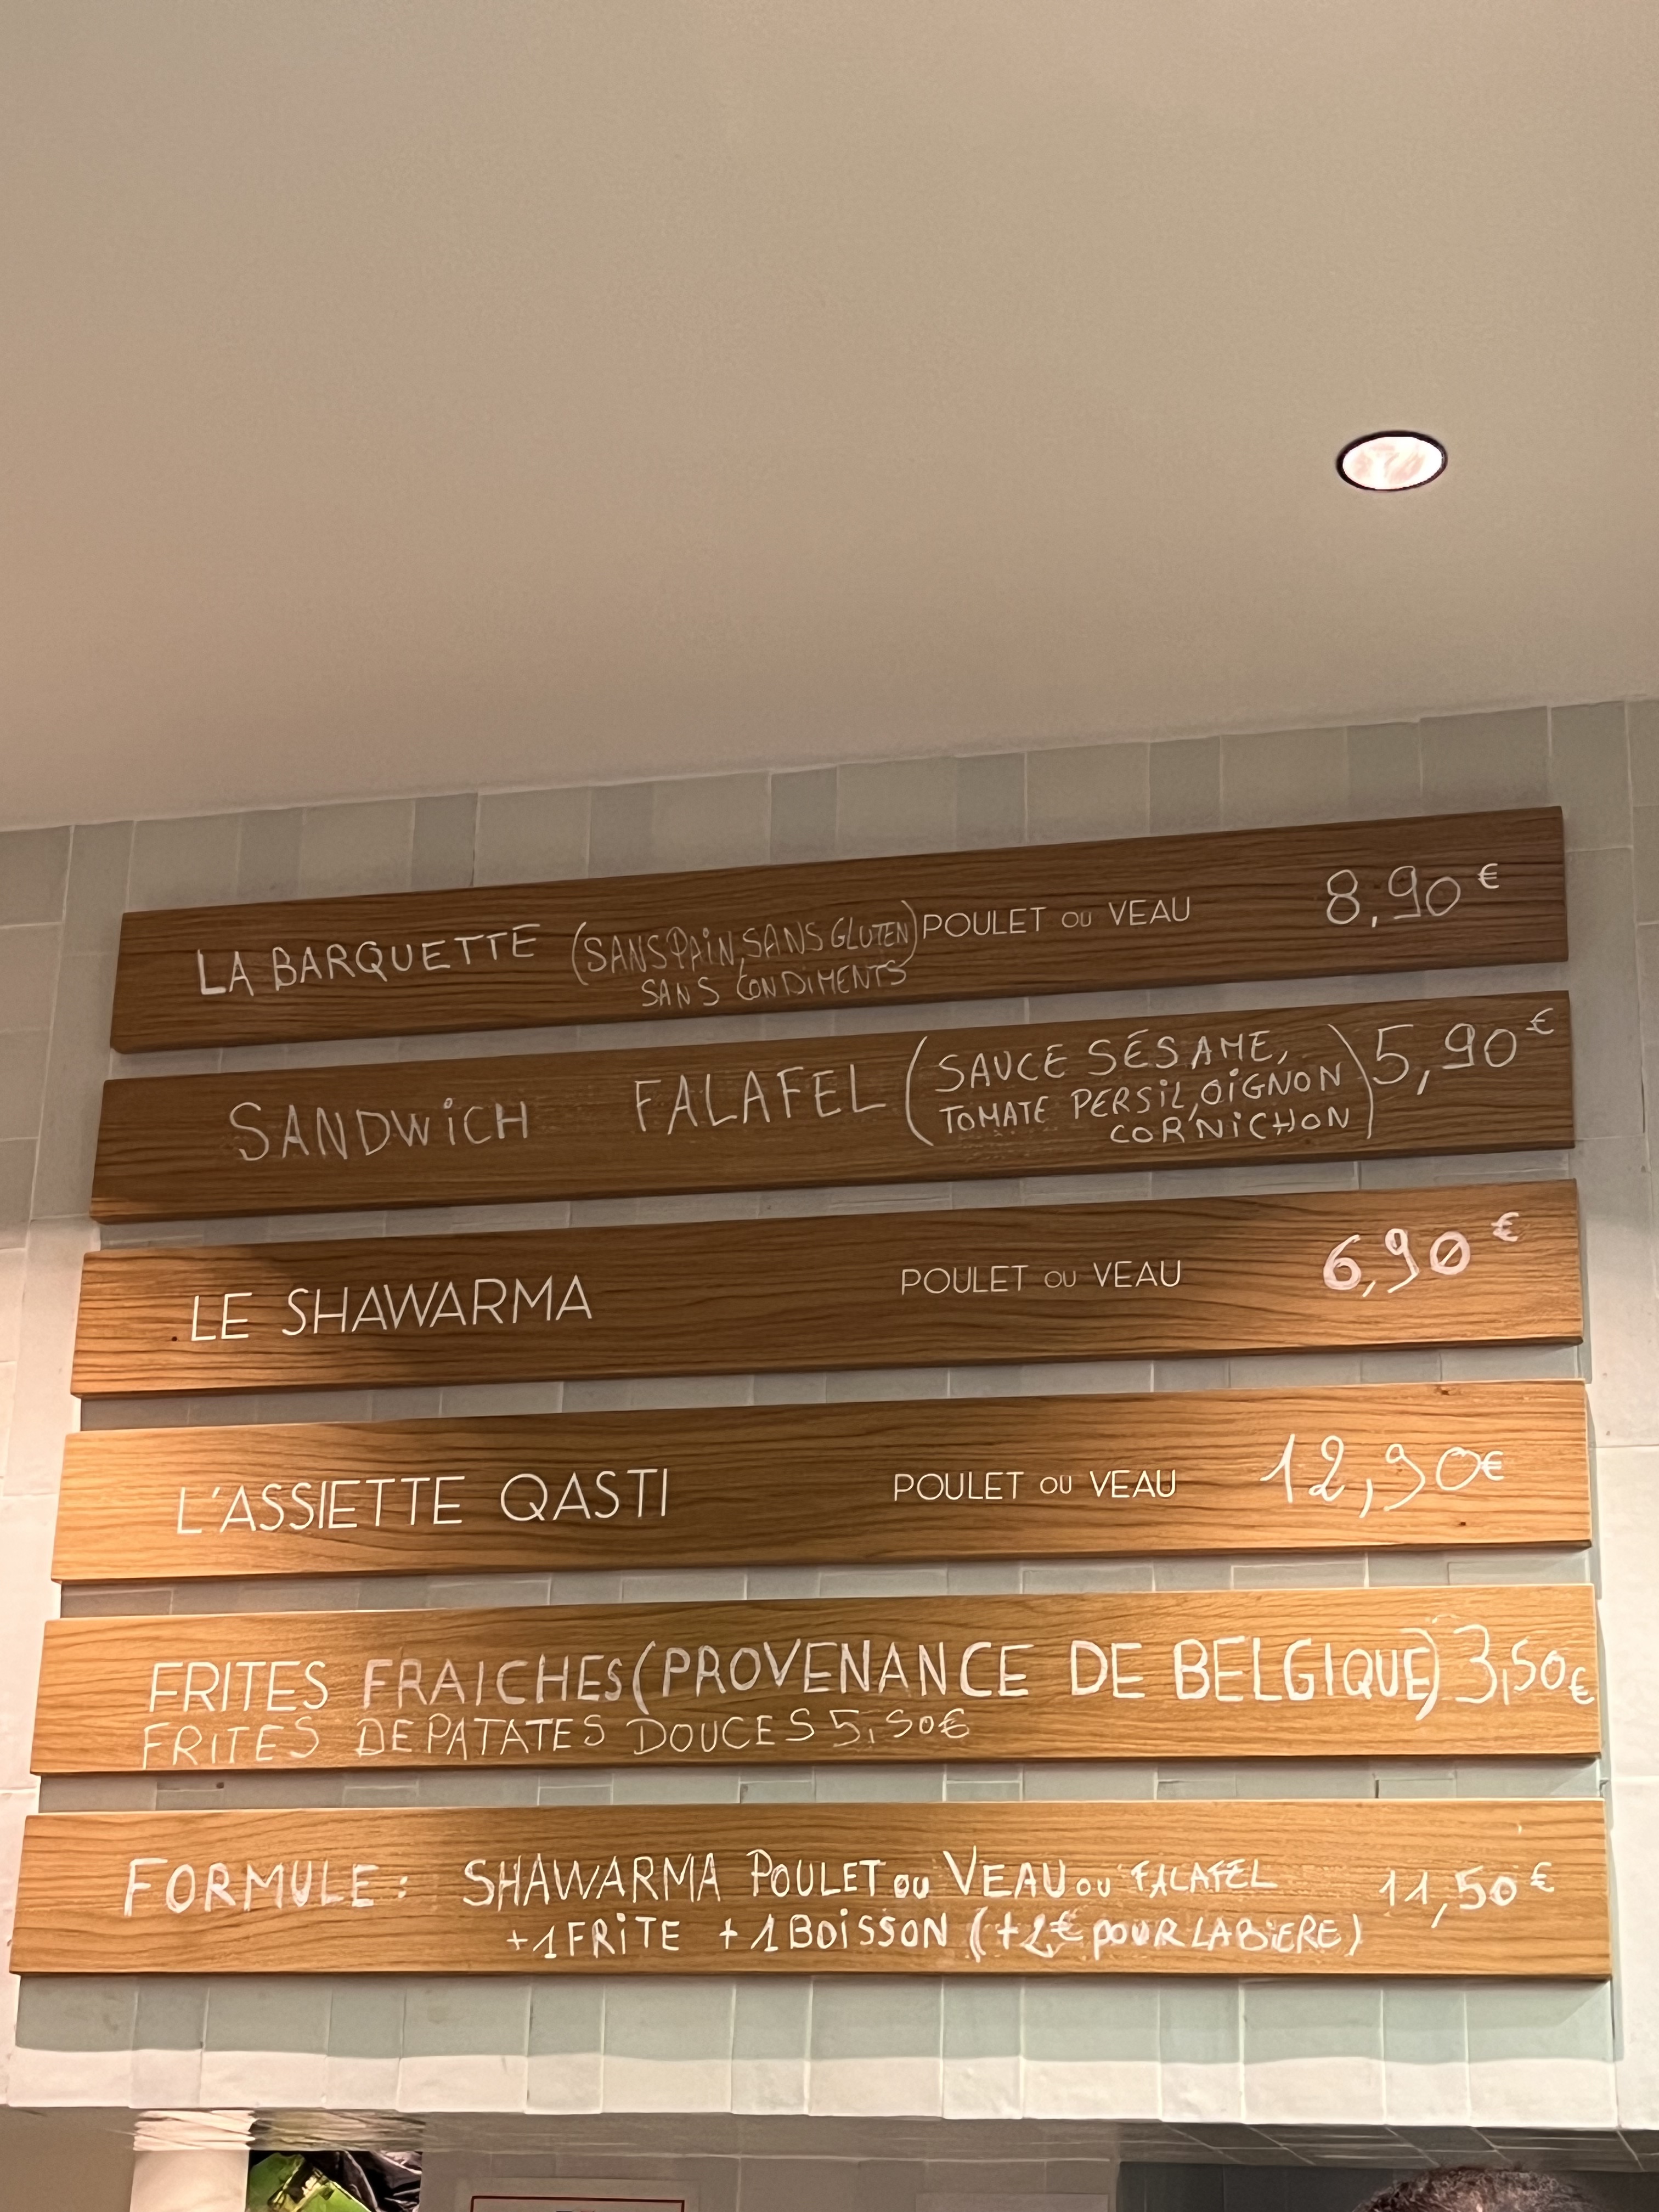 LA BARQUETTE (SANS PAIN, SANS GLUTEN) POULET OU VEAU 8,90€
SANS CONDIMENTS
SANDWICH FALAFEL (SAUCE SÉSAME, 5,90€
TOMATE PERSIL, OIGNON
CORNICHON)
LE SHAWARMA POULET OU VEAU 6,90€
L'ASSIETTE QASTI POULET OU VEAU 12,90€
FRITES FRAICHES (PROVENANCE DE BELGIQUE) 3,50€
FRITES DE PATATES DOUCES 5,50€
FORMULE : SHAWARMA POULET OU VEAU OU FALAFEL 11,50€
+ 1 FRITE + 1 BOISSON (+2€ POUR LA BIERE)